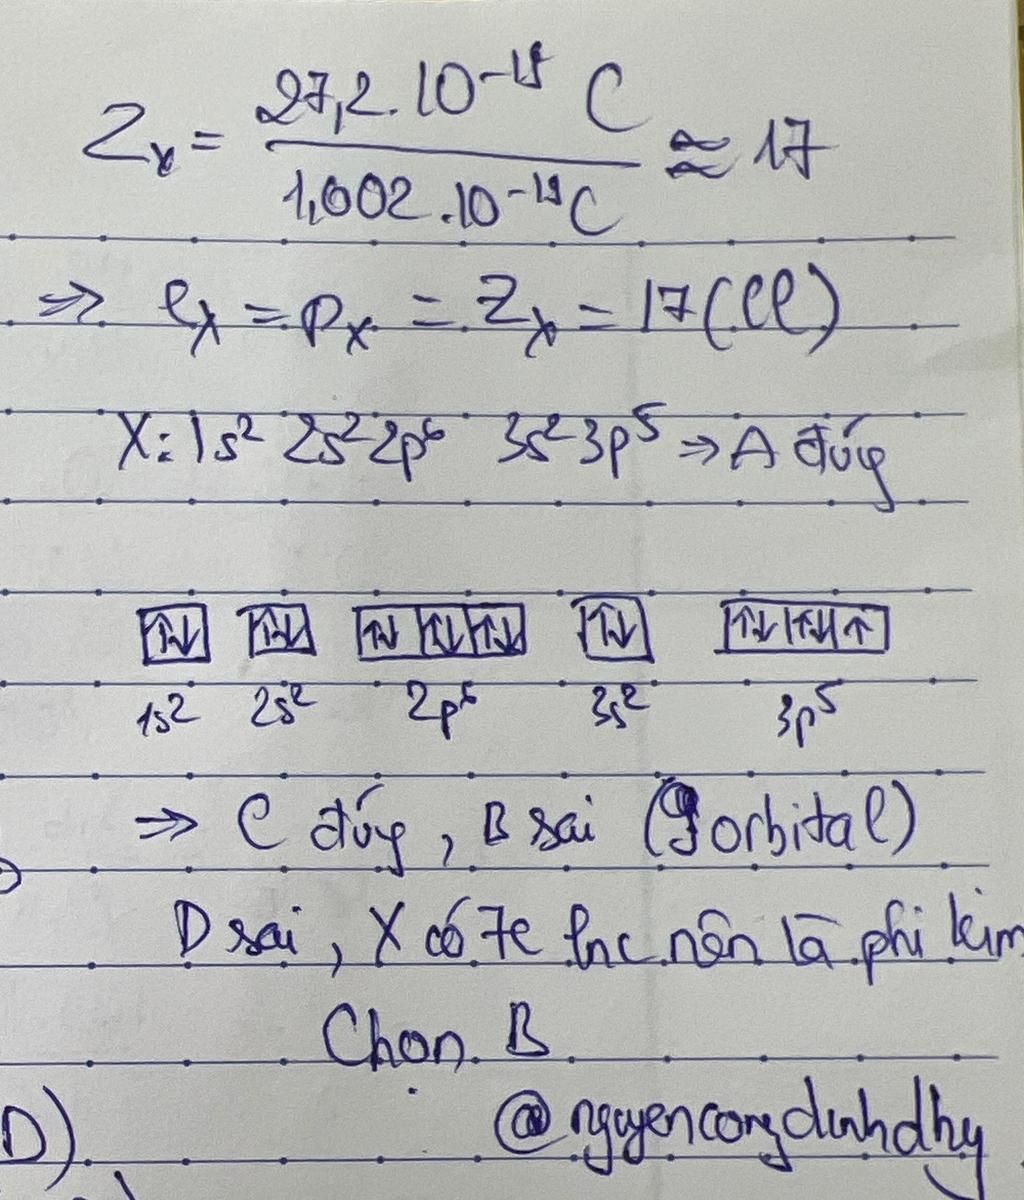 Zₓ = 27,2.10⁻¹⁹ C / 1,602.10⁻¹⁹ C ≈ 17
⇒ eₓ = pₓ = Zₓ = 17 (Cl)
X: 1s² 2s² 2p⁶ 3s² 3p⁵ ⇒ A đúng
↑↓ ↑↓ ↑↓ ↑↓ ↑↓ ↑↓ ↑↓ ↑↓ ↑
1s² 2s² 2p⁶ 3s² 3p⁵
⇒ C đúng, B sai (9 orbital)
D sai, X có 7e lnc nên là phi kim
Chọn B
D) @nguyencongdinhdhy